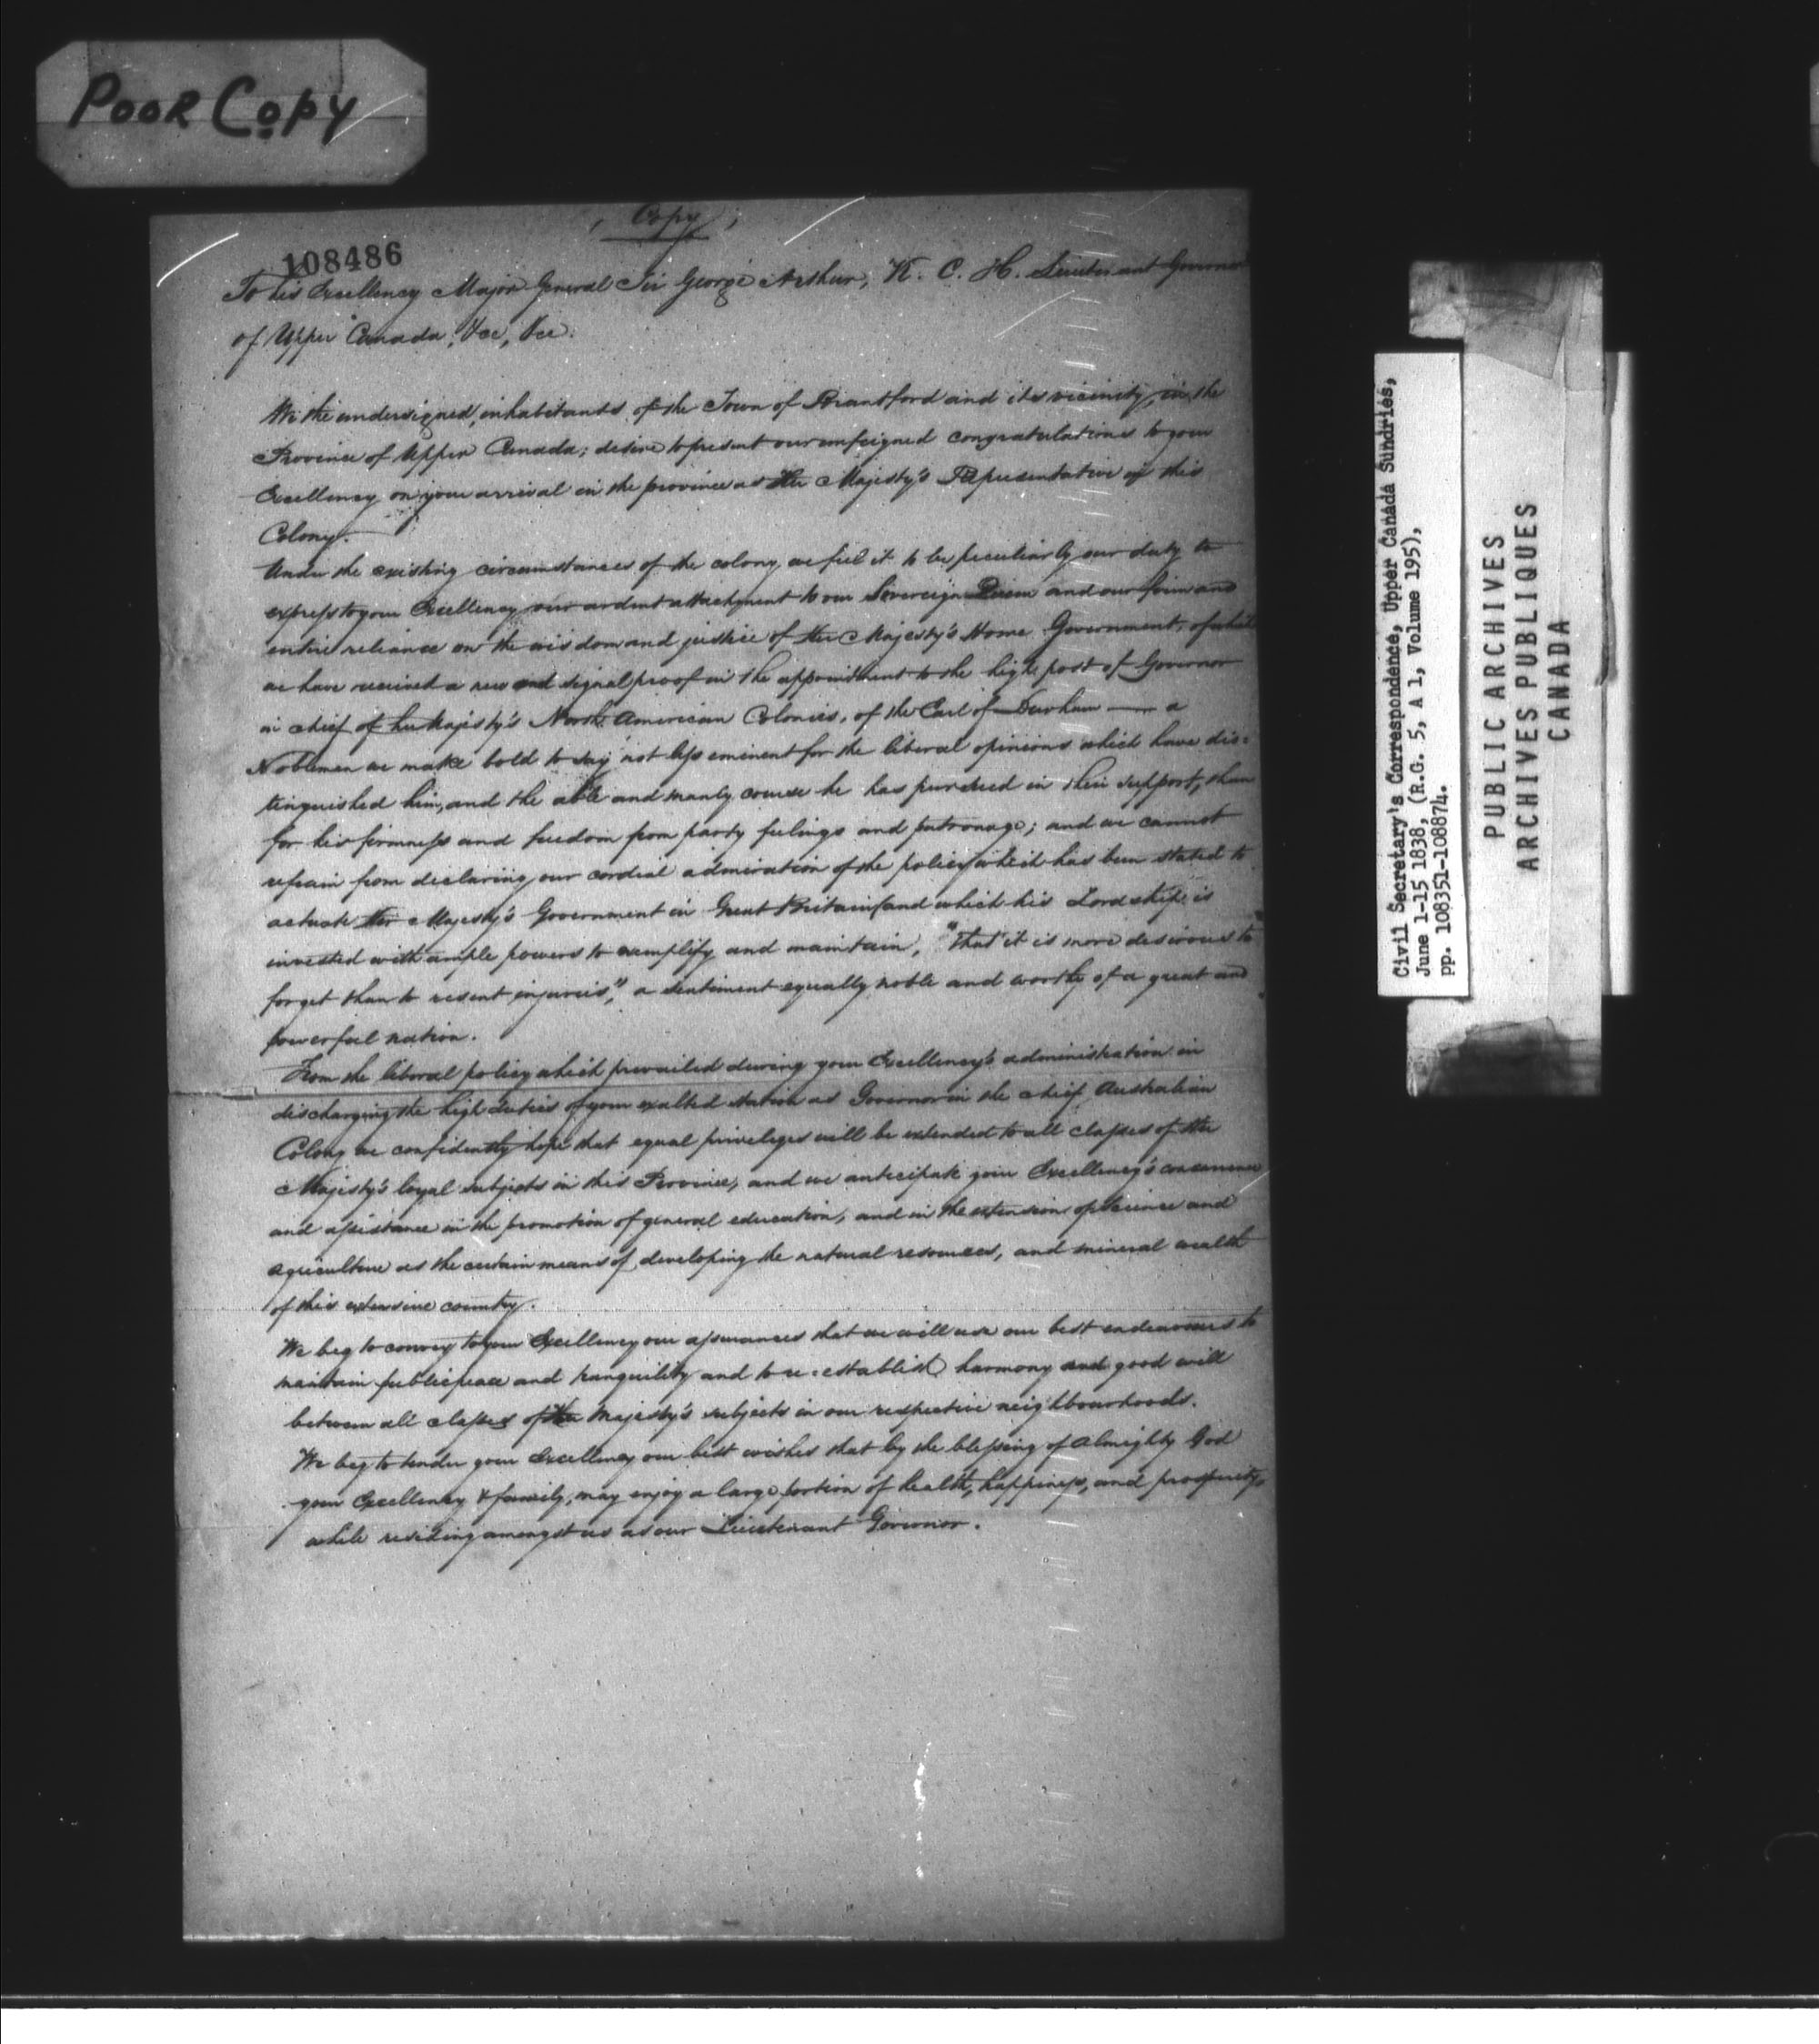 POOR COPY
( Copy )
108486
To his Excellency Major General Sir George Arthur, K. C. H. Lieutenant Governor
of Upper Canada, &cc, &cc.
We the undersigned, inhabitants of the Town of Brantford and its vicinity, in the
Province of Upper Canada; desire to present our unfeigned congratulations to your
Excellency on your arrival in the province as Her Majesty's Representative of this
Colony.
Under the existing circumstances of the colony we feel it to be peculiarly our duty to
express to your Excellency our ardent attachment to our Sovereign Queen and our firm and
entire reliance on the wisdom and justice of Her Majesty's Home Government, of which
we have received a new and signal proof in the appointment to the high post of Governor
in chief of her Majesty's North American Colonies, of the Earl of Durham — a
Nobleman we make bold to say not less eminent for the liberal opinions which have dis=
tinguished him, and the able and manly course he has pursued in their support, than
for his firmness and freedom from party feelings and patronage; and we cannot
refrain from declaring our cordial admiration of the policy which has been stated to
actuate Her Majesty's Government in Great Britain (and which his Lordship is
invested with ample powers to exemplify and maintain, "that it is more desirous to
forget than to resent injuries", a sentiment equally noble and worthy of a great and
powerful nation.
From the liberal policy which prevailed during your Excellency's administration in
discharging the high duties of your exalted station as Governor in the chief Australian
Colony we confidently hope that equal priveleges will be extended to all classes of Her
Majesty's loyal subjects in this Province, and we anticipate your Excellency's concurrence
and assistance in the promotion of general education, and in the extension of Science and
agriculture as the certain means of developing the natural resources, and mineral wealth
of this extensive country.
We beg to convey to your Excellency our assurances that we will use our best endeavours to
maintain public peace and tranquility and to re=establish harmony and good will
between all classes of Her Majesty's subjects in our respective neighbourhoods.
We beg to tender your Excellency our best wishes that by the blessing of Almighty God
your Excellency & family, may enjoy a large portion of health, happiness, and prosperity,
while residing amongst us as our Lieutenant Governor.
Civil Secretary's Correspondence, Upper Canada Sundries,
June 1-15 1838, (R.G. 5, A 1, Volume 195),
pp. 108351-108874.
PUBLIC ARCHIVES
ARCHIVES PUBLIQUES
CANADA